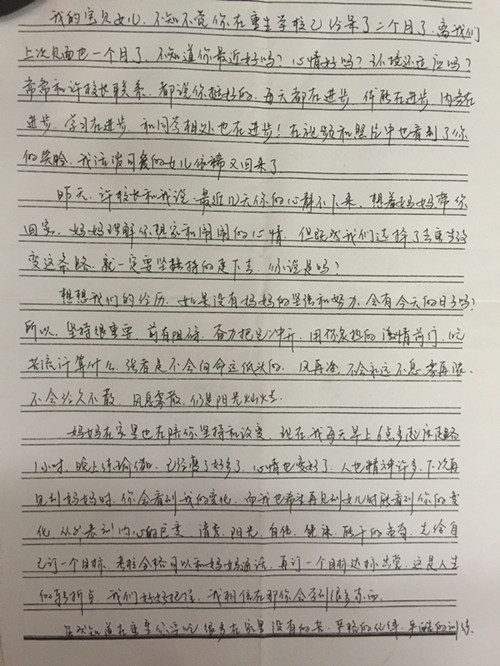 我的宝贝女儿,不知不觉你在重生学校已经第了二个月了,离我们
上次见面也一个月了,不知道你最近好吗?心情好吗?环境还适应吗?
常常和许校长联系,都说你挺好的,每天都在进步,体能在进步,内务在
进步,学习在进步,和同学相处也在进步!在视频和照片中也看到了你
的笑脸,我活泼可爱的女儿依稀又回来了
昨天,许校长和我说,最近几天你的心静不下来,想着妈妈带你
回家,妈妈理解你想家和闹闹的心情,但既然我们选择了去重生改
变这条路,就一定要坚持的走下去,你说是吗?
想想我们的经历,如果没有妈妈的坚强和努力,会有今天的日子吗?
所以,坚持很重要,前有阻碍,奋力把它冲开,用你炙热的激情前行,吃
苦流汗算什么,强者是不会向命运低头的,风再冷,不会永远不息,雾再浓,
不会经久不散,风息雾散,仍是阳光灿烂
妈妈在家里也在陪你坚持和改变,现在我每天早上6点多起床走路
1小时,晚上练瑜伽,已经瘦了好多了,心情也变好了,人也精神许多,下次再
见到妈妈时,你会看到我的变化,而我也希望再见到女儿时能看到你的变
化,从外表到内心的巨变,清爽,阳光,自信,健康,能干的
己订一个目标,考核合格可以和妈妈通话,再订一个目标
的转折点,我们好好把握,我相信在那你会学到很多东西,
虽然知道在重生你会吃很多在家里没有的苦,严格的纪律,严酷的训练